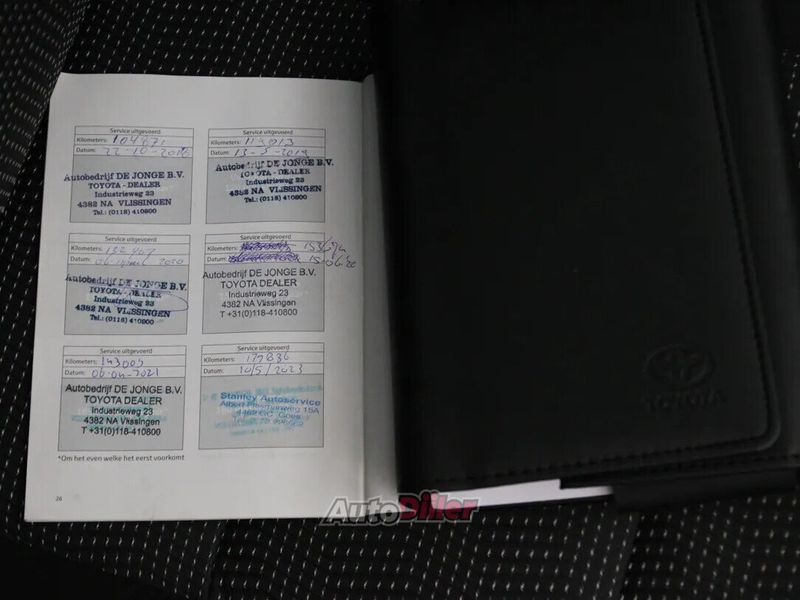 Service uitgevoerd
Kilometers: 104871
Datum: 22-10-2018
Autobedrijf DE JONGE B.V.
TOYOTA - DEALER
Industrieweg 23
4382 NA VLISSINGEN
Tel.: (0118) 410800
Service uitgevoerd
Kilometers: 119013
Datum: 13-5-2019
Autobedrijf DE JONGE B.V.
TOYOTA - DEALER
Industrieweg 23
4382 NA VLISSINGEN
Tel.: (0118) 410800
Service uitgevoerd
Kilometers: 132467
Datum: 06 2020
Autobedrijf DE JONGE B.V.
TOYOTA - DEALER
Industrieweg 23
4382 NA VLISSINGEN
Tel.: (0118) 410800
Service uitgevoerd
Kilometers:
Datum:
Autobedrijf DE JONGE B.V.
TOYOTA DEALER
Industrieweg 23
4382 NA Vlissingen
T +31(0)118-410800
Service uitgevoerd
Kilometers: 143005
Datum: 06-04-2021
Autobedrijf DE JONGE B.V.
TOYOTA DEALER
Industrieweg 23
4382 NA Vlissingen
T +31(0)118-410800
Service uitgevoerd
Kilometers: 179886
Datum: 10/5/2023
Stanley Autoservice
Albert Plesmanweg 15A
Goes
*Om het even welke het eerst voorkomt
26
AutoDiler